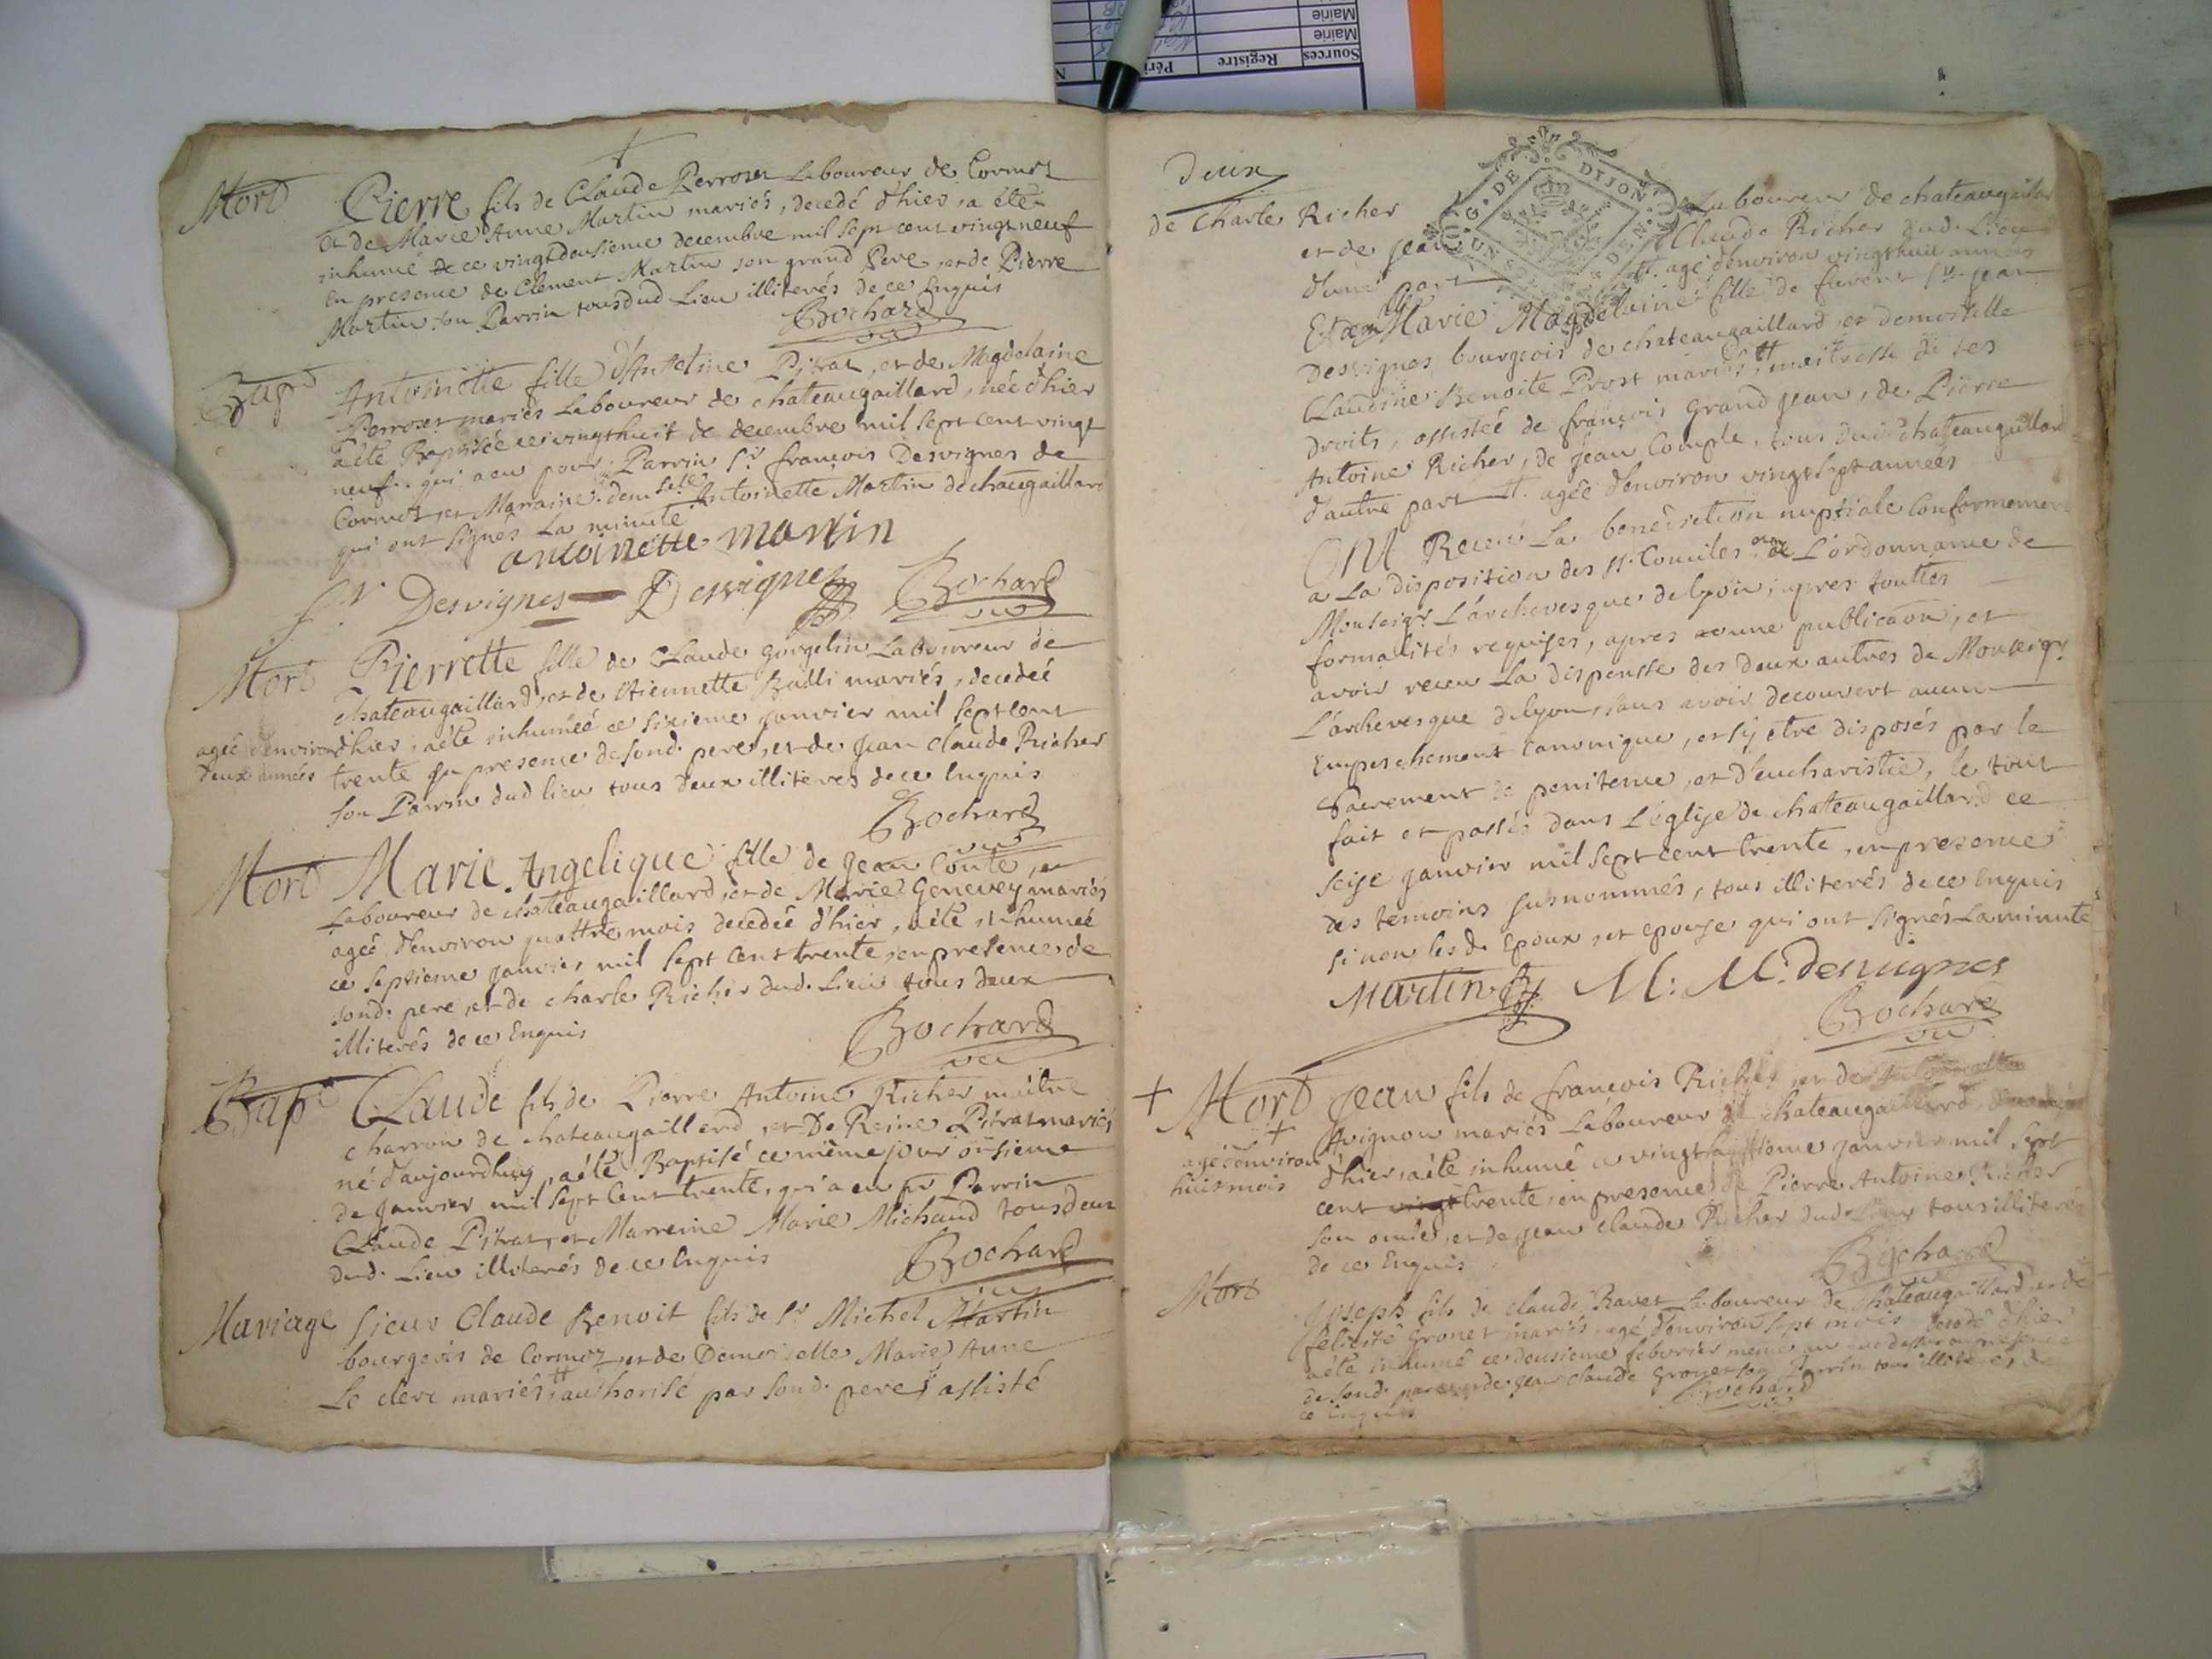 Sources Registre Péri N
Mairie
Mairie
Mort Pierre fils de Claude Perroset Laboureur de Cormoz
et de Marie Anne Martin mariés, decedé d'hier, a été
inhumé ce vingtdeusieme decembre mil sept cent vingt neuf
en presence de Clement Martin son grand Pere, et de Pierre
Martin son Parrin tous dud Lieu illiterés de ce Enquis
Bochard
Bapt Antoinette fille d'Antelme Pitrat, et de Magdelaine
Perroset mariés Laboureur de chateaugaillard, née d'hier
a été Baptisée ce vingthuit de decembre mil sept cent vingt
neuf. qui a eu pour Parrin Sr. françois Desvignes de
Cormoz, et Marraine demselle Antoinette Martin de chaugaillard
qui ont signés La minute
antoinette martin
fr Desvignes Desvignes Bochard
Mort Pierrette fille de Claude Gorgelin Laboureur de
chateaugaillard, et de Etiennette Bulli mariés, decedeé
agée d'environ d'hier, a été inhumeé ce sixieme janvier mil sept cent
deux années trente en presence de sond. pere, et de jean claude Richer
son Parrin dud lieu tous deux illiteres de ce enquis
Bochard
Mort Marie Angelique fille de jean Conte,
Laboureur de chateaugaillard, et de Marie Genevey mariés
ageé d'environ quattre mois decedeé d'hier, a été inhumeé
ce septieme janvier mil sept cent trente, en presence de
sond. pere, et de charle Richer dud. Lieu tous deux
illiterés de ce Enquis Bochard
Bapt Claude fils de Pierre Antoine Richer maitre
charron de chateaugaillard, et De Reine Pitrat mariés
né d'aujourdhuy, a été Baptisé ce même jour onsieme
de janvier mil sept Cent trente, qui a eu pr Parrin
Claude Pitrat, et Marreine Marie Michaud tous deux
dud. Lieu illiterés de ce enquis Bochard
Mariage Sieur Claude Benoit fils de Sr Michel Martin
bourgeois de Cormoz, et de Demoiselle Marie Anne
Le clerc mariés, authorisé par sond. pere, assisté
Deux
G. DE DIJON
de Charle Richer Laboureur de chateaugaillard
et de jean Claude Richer dud. Lieu
d'une part agé d'environ vingthuit années
Et dem Marie Magdelaine fille de Sr jean
Desvignes bourgeois de chateaugaillard, et demoiselle
Claudine Benoite Prost mariés, maitresse de ses
droits, assistée de françois Grandjean, de Pierre
Antoine Richer, de jean Compte, tous dud. chateaugaillard
d'autre part. agée d'environ vingt sept années
Ont Receu La benediction nuptiale Conformement
a La disposition des st. Conciles et de L'ordonnance de
Monseigr. L'archevesque de lyon, apres touttes
formalités requises, apres une publicaon, et
avoir receu La dispensse des deux autres de Monseigr
L'archevesque de lyon, sans avoir decouvert aucun
Empeschement Canonique, et s'y etre disposés par le
Sacrement de penitence, et d'eucharistie, le tout
fait et passés dans L'eglise de chateaugaillard ce
seize janvier mil sept cent trente, en presence
des temoins susnommés, tous illiterés de ce Enquis
sinon les d. Epoux, et epouse qui ont signés La minute
Martin M: M: desvignes
Bochard
+ Mort jean fils de françois Richer, et de
Avignon mariés Laboureur de chateaugaillard
agé d'environ d'hier, a été inhumé ce janvier mil sept
huit mois cent vingt trente, en presence de Pierre Antoine Richer
son oncle, et de jean claude Richer dud. Lieu tous illiterés
de ce Enquis Bochard
Mort Joseph fils de claude Ravet Laboureur de chateaugaillard, et de
felicité Gronet mariés, agé d'environ sept mois decedé d'hier
a été inhumé ce deusieme febvrier meme an que dessus en presence
de sond. pere, et de jean claude Gronet son Parrin tous illiterés de
ce Enquis Bochard